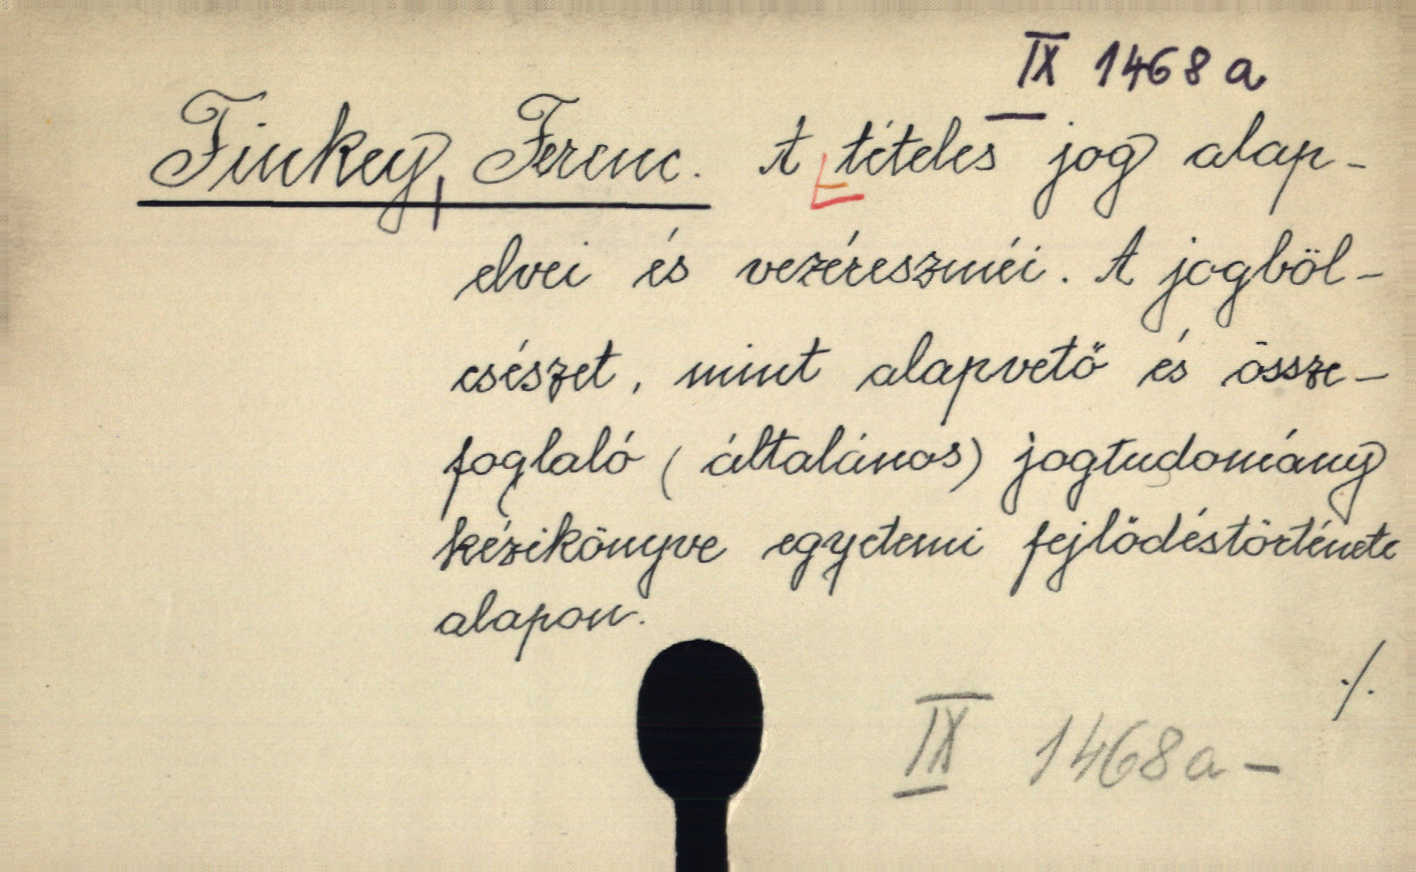 IX 1468 a
Finkey, Ferenc. A tételes jog alap-
elvei és vezéreszméi. A jogböl-
csészet, mint alapvető és össze-
foglaló (általános) jogtudomány
kézikönyve egyetemi fejlődéstörténete
alapon.
./.
IX 1468a-